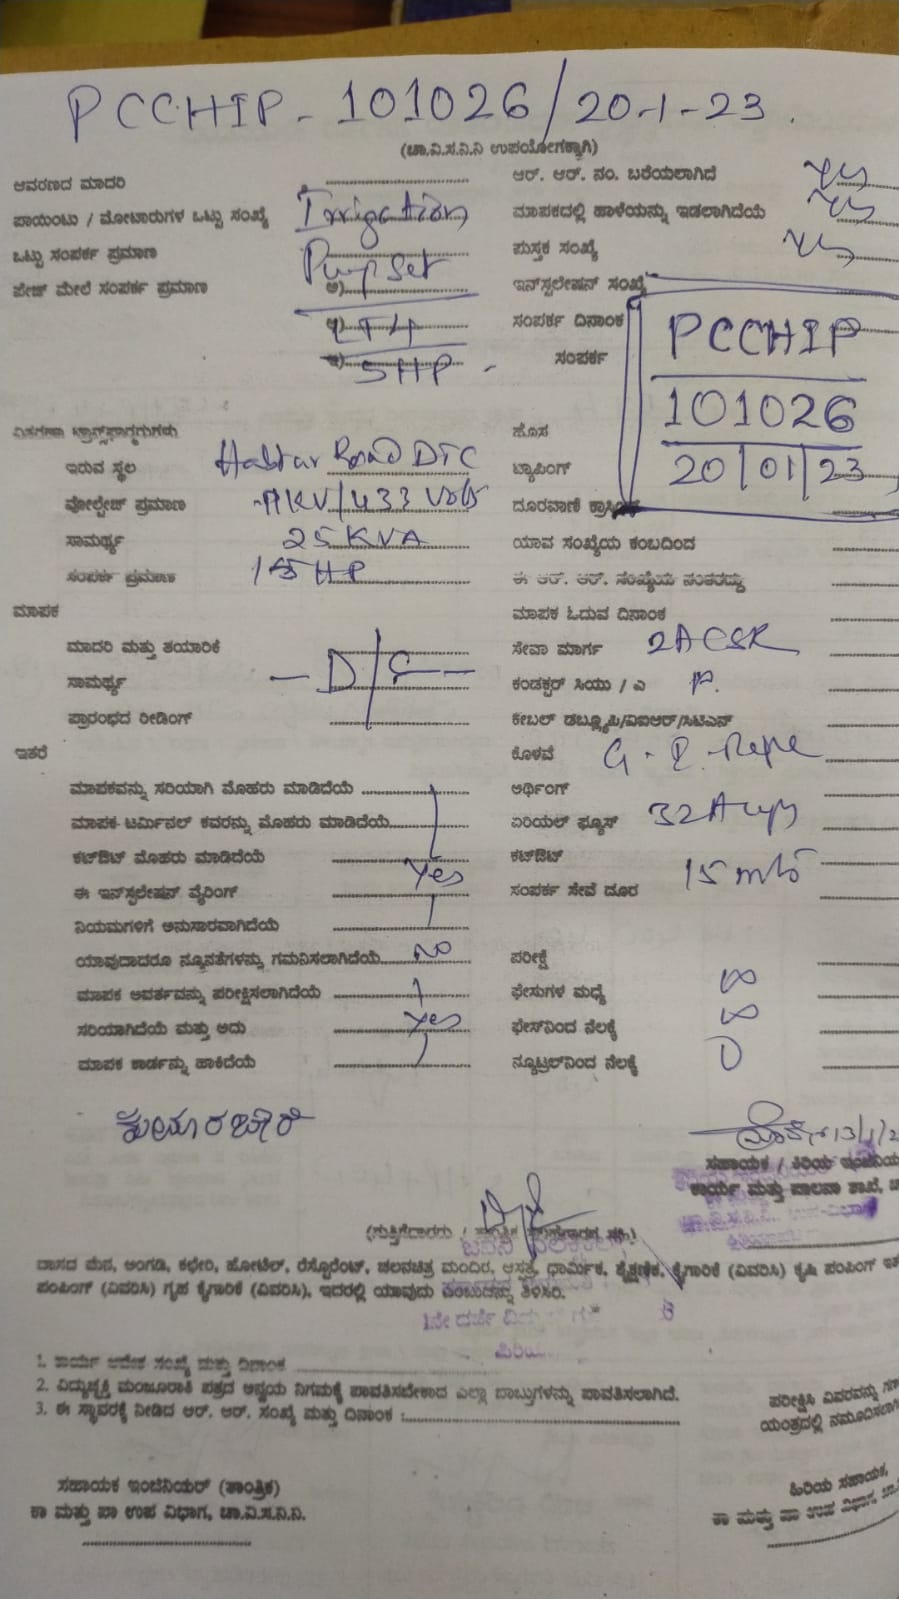 PCCHIP - 101026/20-1-23.
(ಚಾ.ವಿ.ಸ.ನಿ.ನಿ ಉಪಯೋಗಕ್ಕಾಗಿ)
ಆವರಣದ ಮಾದರಿ
ಆರ್. ಆರ್. ನಂ. ಬರೆಯಲಾಗಿದೆ yes
ಪಾಯಿಂಟು / ಮೋಟಾರುಗಳ ಒಟ್ಟು ಸಂಖ್ಯೆ Irrigation
ಮಾಪಕದಲ್ಲಿ ಹಾಳೆಯನ್ನು ಇಡಲಾಗಿದೆಯೆ yes
ಒಟ್ಟು ಸಂಪರ್ಕ ಪ್ರಮಾಣ Pump set
ಪುಸ್ತಕ ಸಂಖ್ಯೆ yes
ಪೇಜ್ ಮೇಲೆ ಸಂಪರ್ಕ ಪ್ರಮಾಣ ಅ)
ಇನ್‌ಸ್ಟಲೇಷನ್ ಸಂಖ್ಯೆ
ಸಂಪರ್ಕ ದಿನಾಂಕ PCCHIP
5HP
ಸಂಪರ್ಕ
101026
20/01/23
ಇರುವ ಸ್ಥಲ Road DTC
ಹೊಸ
ಟ್ಯಾಪಿಂಗ್
ವೋಲ್ಟೇಜ್ ಪ್ರಮಾಣ 11KV/433 Volts
ದೂರವಾಣಿ
ಸಾಮರ್ಥ್ಯ 25KVA
ಯಾವ ಸಂಖ್ಯೆಯ ಕಂಬದಿಂದ
ಸಂಪರ್ಕ ಪ್ರಮಾಣ HP
ಈ ಆರ್. ಆರ್. ಸಂಖ್ಯೆಯ ನಂತರದ್ದು
ಮಾಪಕ
ಮಾಪಕ ಓದುವ ದಿನಾಂಕ
ಮಾದರಿ ಮತ್ತು ತಯಾರಿಕೆ
ಸೇವಾ ಮಾರ್ಗ 2ACSR
ಸಾಮರ್ಥ್ಯ - D/C -
ಕಂಡಕ್ಟರ್ ಸಿಯು / ಎ
ಪ್ರಾರಂಭದ ರೀಡಿಂಗ್
ಕೇಬಲ್ ಡಬ್ಲ್ಯೂಪಿ/ವಿಐಆರ್/ಸಿಟಿಎಸ್
ಇತರೆ
ಕೊಳವೆ
ಮಾಪಕವನ್ನು ಸರಿಯಾಗಿ ಮೊಹರು ಮಾಡಿದೆಯೆ
ಅರ್ಥಿಂಗ್
ಮಾಪಕ ಟರ್ಮಿನಲ್ ಕವರನ್ನು ಮೊಹರು ಮಾಡಿದೆಯೆ
ಏರಿಯಲ್ ಫ್ಯೂಸ್
ಕಟ್‌ಔಟ್ ಮೊಹರು ಮಾಡಿದೆಯೆ
ಕಟ್‌ಔಟ್
ಈ ಇನ್‌ಸ್ಟಲೇಷನ್ ವೈರಿಂಗ್ Yes
ಸಂಪರ್ಕ ಸೇವೆ ದೂರ 15 mts
ನಿಯಮಗಳಿಗೆ ಅನುಸಾರವಾಗಿದೆಯೆ
ಯಾವುದಾದರೂ ನ್ಯೂನತೆಗಳನ್ನು ಗಮನಿಸಲಾಗಿದೆಯೆ NO
ಪರೀಕ್ಷೆ
ಮಾಪಕ ಆವರ್ತವನ್ನು ಪರೀಕ್ಷಿಸಲಾಗಿದೆಯೆ
ಫೇಸುಗಳ ಮಧ್ಯೆ ∞
ಸರಿಯಾಗಿದೆಯೆ ಮತ್ತು ಅದು Yes
ಫೇಸ್‌ನಿಂದ ನೆಲಕ್ಕೆ ∞
ಮಾಪಕ ಕಾರ್ಡನ್ನು ಹಾಕಿದೆಯೆ
ನ್ಯೂಟ್ರಲ್‌ನಿಂದ ನೆಲಕ್ಕೆ 0
ಸಹಾಯಕ / ಕಿರಿಯ
ಕಾರ್ಯ ಮತ್ತು ಪಾಲನಾ ಶಾಖೆ,
(ಗುತ್ತಿಗೆದಾರರು /
ವಾಸದ ಮನೆ, ಅಂಗಡಿ, ಕಛೇರಿ, ಹೋಟೆಲ್, ರೆಸ್ಟೊರೆಂಟ್, ಚಲನಚಿತ್ರ ಮಂದಿರ, ಆಸ್ಪತ್ರೆ, ಧಾರ್ಮಿಕ, ಶೈಕ್ಷಣಿಕ, ಕೈಗಾರಿಕೆ (ವಿವರಿಸಿ) ಕೃಷಿ ಪಂಪಿಂಗ್
ಪಂಪಿಂಗ್ (ವಿವರಿಸಿ) ಗೃಹ ಕೈಗಾರಿಕೆ (ವಿವರಿಸಿ), ಇದರಲ್ಲಿ ಯಾವುದು ಎಂಬುದನ್ನು ತಿಳಿಸಿರಿ.
1. ಕಾರ್ಯ ಆದೇಶ ಸಂಖ್ಯೆ ಮತ್ತು ದಿನಾಂಕ
2. ವಿದ್ಯುಚ್ಛಕ್ತಿ ಮಂಜೂರಾತಿ ಪತ್ರದ ಅನ್ವಯ ನಿಗಮಕ್ಕೆ ಪಾವತಿಸಬೇಕಾದ ಎಲ್ಲಾ ಬಾಬ್ತುಗಳನ್ನು ಪಾವತಿಸಲಾಗಿದೆ.
3. ಈ ಸ್ಥಾವರಕ್ಕೆ ನೀಡಿದ ಆರ್. ಆರ್. ಸಂಖ್ಯೆ ಮತ್ತು ದಿನಾಂಕ :
ಪರೀಕ್ಷಿಸಿ ವಿವರವನ್ನು
ಯಂತ್ರದಲ್ಲಿ
ಸಹಾಯಕ ಇಂಜಿನಿಯರ್ (ತಾಂತ್ರಿಕ)
ಹಿರಿಯ ಸಹಾಯಕ,
ಕಾ ಮತ್ತು ಪಾ ಉಪ ವಿಭಾಗ, ಚಾ.ವಿ.ಸ.ನಿ.ನಿ.
ಕಾ ಮತ್ತು ಪಾ ಉಪ ವಿಭಾಗ,